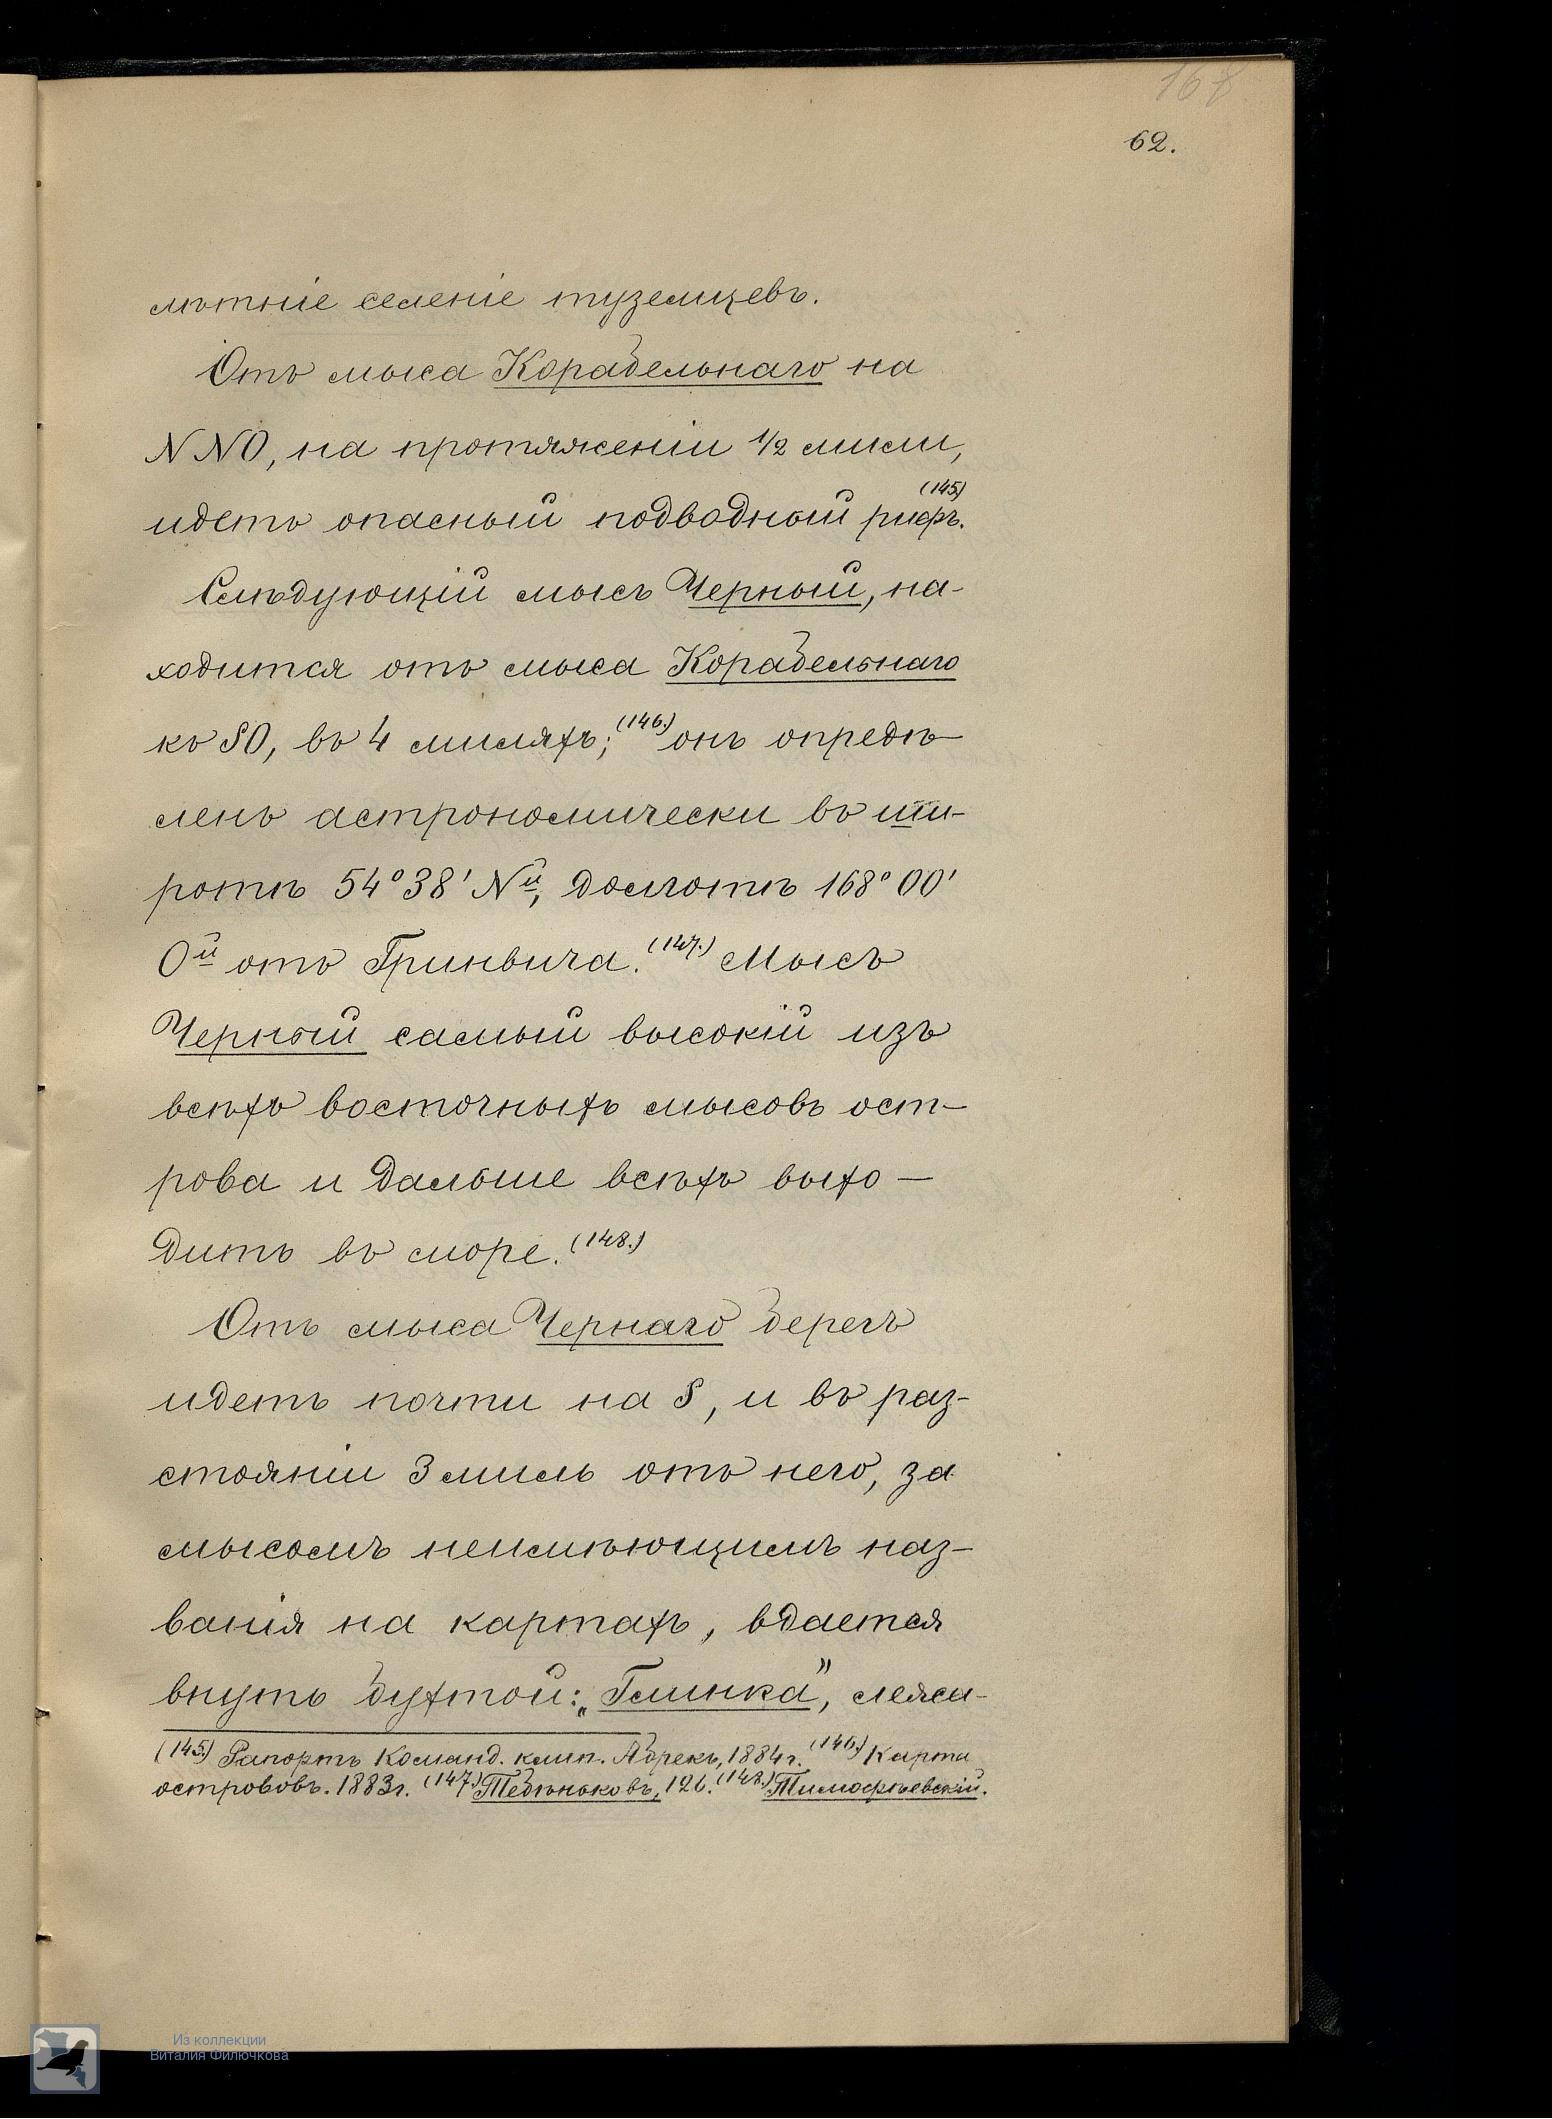 167
62.
лѣтніе селеніе туземцевъ.
Отъ мыса Корабельнаго на
NNO, на протяженіи 1/2 мили,
идетъ опасный подводный рифъ.(145)
Слѣдующій мысъ Черный, на-
ходится отъ мыса Корабельнаго
къ SO, въ 4 миляхъ;(146.) онъ опредѣ-
ленъ астрономически въ ши-
ротѣ 54°38' Nй, долготѣ 168°00'
Oй отъ Гринвича.(147.) Мысъ
Черный самый высокій изъ
всѣхъ восточныхъ мысовъ ост-
рова и дальше всѣхъ выхо-
дитъ въ море.(148.)
Отъ мыса Чернаго берегъ
идетъ почти на S, и въ раз-
стояніи 3 миль отъ него, за
мысомъ неимѣющимъ наз-
ванія на картахъ, вдается
внутъ бухтой: „Глинка", лежа-
(145) Рапортъ Команд. клип. Абрекъ, 1884 г. (146.) Карта
острововъ. 1883 г. (147.) Тебѣньковъ, 126. (148.) Тимофѣевскій.
Из коллекции
Виталия Филючкова